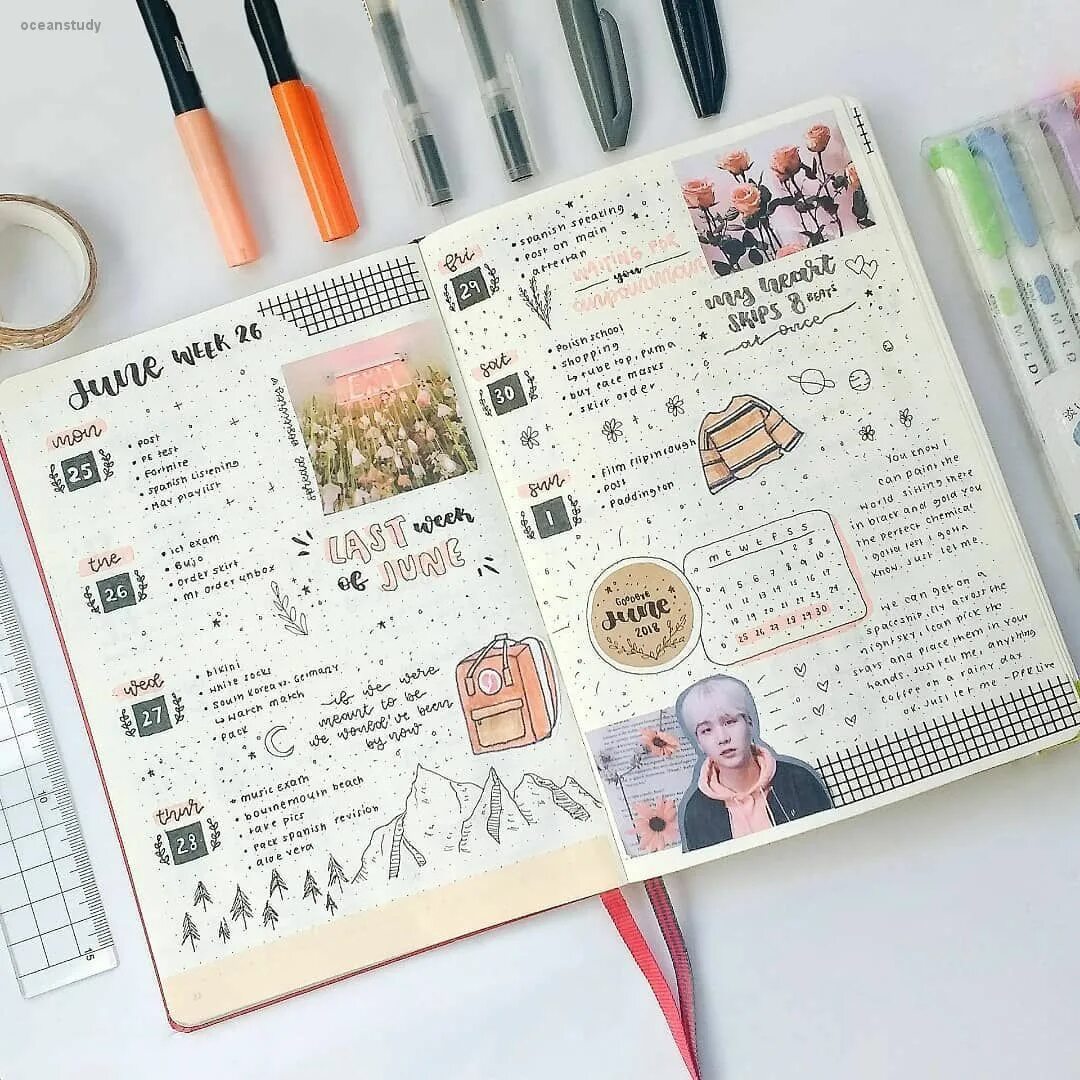 oceanstudy
June WEEK 26
mon
25
• post
• PE test
• Fortnite
• spanish listening
• May playlist
EXIT
LAST week
of JUNE
tue
26
• ict exam
• Bujo
• order skirt
• MT order unbox
wed
27
• bikini
• white socks
• south korea vs. Germany
↳ watch match
• pack
if we were
meant to be
we would've been
by now
thur
28
• music exam
• bournemouth beach
• take pics
• pack spanish revision
• aloe vera
fri
29
• spanish speaking
• post on main
WAITING FOR
you
MY HEART
SKIPS 8 BEATS
at once
sat
30
• polish school
• shopping
↳ tube top, puma
• buy face masks
• skirt order
sun
1
• film flipthrough
• post
• Paddington
GOODBYE
June
2018
m t w t f s s
1 2 3
4 5 6 7 8 9 10
11 12 13 14 15 16 17
18 19 20 21 22 23 24
25 26 27 28 29 30
You know I
can paint the
world sitting there
in black and gold you
the perfect chemical
I gotta test I gotta
know. Just let me.
We can get on a
spaceship, fly across the
night sky, I can pick the
stars and place them in your
hands. Just tell me, anything
coffee on a rainy day
ok. Just let me - DPR Live
MILD
MILD
10
15